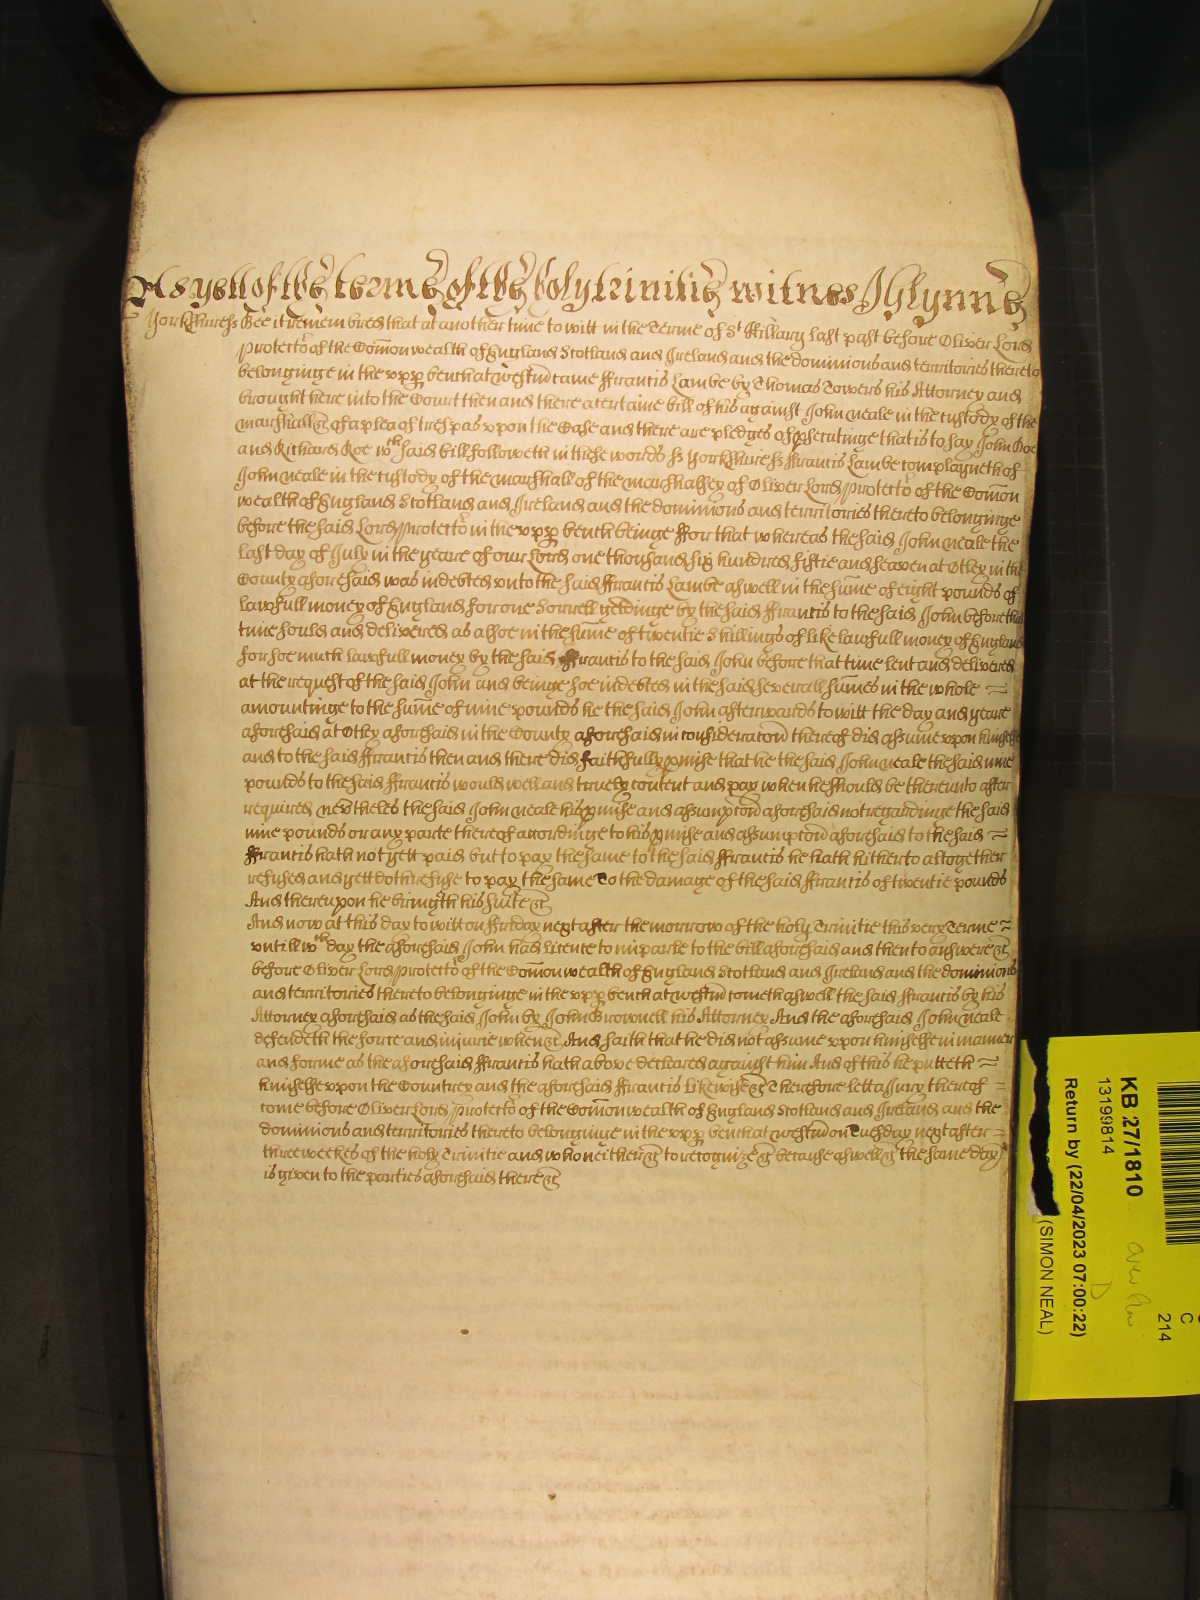 As yett of the terme of the holy trinitie witnes J Glynne
Yorkshire ss Bee it remembred that at another time to witt in the Terme of St Hillary last past before Oliver Lord
Protector of the Com̄on wealth of England Scotland and Ireland and the dominions and territories thereto
belonginge in the upp bench at Westm̄ came Ffrancis Lambe by Thomas Towers his Attorney and
brought here into the Court then and there a certaine bill of his against John Neale in the custody of the
marshall &c of a plea of trespas upon the Case and there are pledges of psecutinge that is to say John Doe
and Richard Roe wch said bill followeth in these words ss Yorkshire ss Ffrancis Lambe complayneth of
John Neale in the custody of the marshall of the marshalsey of Oliver Lord Protector of the Com̄on
wealth of England Scotland and Ireland and the dominions and territories thereto belonginge
before the said Lord Protector in the upp bench beinge Ffor that whereas the said John Neale the
last day of July in the yeare of our Lord one thousand six hundred fiftie and seaven at Otley in the
County aforesaid was indebted unto the said Ffrancis Lambe aswell in the sum̄e of eight pounds of
lawfull money of England for one Sorrell geldinge by the said Ffrancis to the said John before that
time sould and delivered as alsoe in the sum̄e of twentie Shillings of like lawfull money of England
for soe much lawfull money by the said Ffrancis to the said John before that time lent and delivered
at the request of the said John and beinge soe indebted in the said severall sum̄es in the whole =
amountinge to the sum̄e of nine pounds he the said John afterwards to witt the day and yeare
aforesaid at Otley aforesaid in the County aforesaid in consideracōn thereof did assume upon himselfe
and to the said Ffrancis then and there did faithfully pmise that he the said John Neale the said nine
pounds to the said Ffrancis would well and truely content and pay when he should be thereunto after
required nevtheles the said John Neale his pmise and assumpcōn aforesaid not regardinge the said
nine pounds or any parte thereof accordinge to his pmise and assumpcōn aforesaid to the said =
Ffrancis hath not yett paid but to pay the same to the said Ffrancis he hath hitherto altogether
refused and yett doth refuse to pay the same To the damage of the said Ffrancis of twentie pounds
And thereupon he bringth his suite &c
And now at this day to witt on Ffriday next after the morrow of the holy Trinitie this very Terme =
untill wch day the aforesaid John had licence to imparle to the bill aforesaid and then to answere &c
before Oliver Lord Protector of the Com̄on wealth of England Scotland and Ireland and the dominions
and territories thereto belonginge in the upp bench at Westm̄ cometh aswell the said Ffrancis by his
Attorney aforesaid as the said John by John Brownell his Attorney And the aforesaid John Neale
defendeth the force and injurie when &c And saith that he did not assume upon himselfe in manner
and forme as the aforesaid Ffrancis hath above declared against him And of this he putteth =
himselfe upon the Countrey and the aforesaid Ffrancis likewise &c Therefore lett a Jury thereof =
come before Oliver Lord Protector of the Com̄on wealth of England Scotland and Ireland and the
dominions and territories thereto belonginge in the upp bench at Westm̄ on Tuesday next after =
three weekes of the holy Trinitie and who neither &c to recognize &c because aswell &c the same day
is given to the parties aforesaid there &c
KB 27/1810
13199814
Return by (22/04/2023 07:00:22)
(SIMON NEAL)
D
C
214